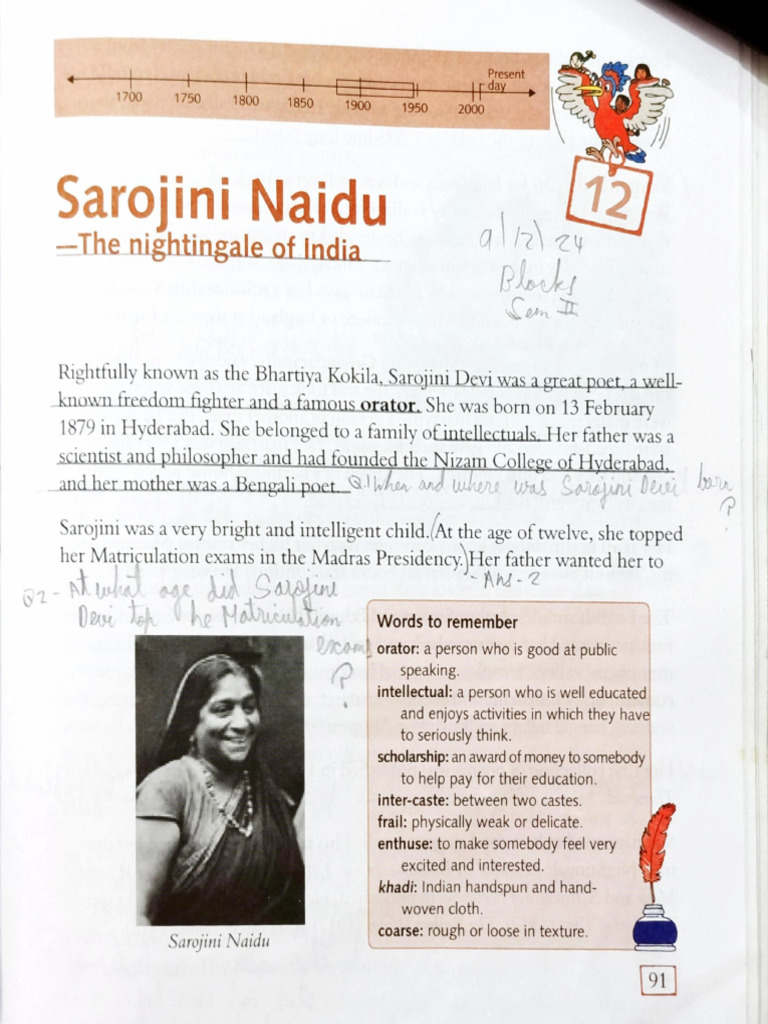 Present
day
1700 1750 1800 1850 1900 1950 2000
12
Sarojini Naidu
—The nightingale of India
9/12/24
Blocks
Sem II
Rightfully known as the Bhartiya Kokila, Sarojini Devi was a great poet, a well-
known freedom fighter and a famous orator. She was born on 13 February
1879 in Hyderabad. She belonged to a family of intellectuals. Her father was a
scientist and philosopher and had founded the Nizam College of Hyderabad,
and her mother was a Bengali poet. Q.1 When and where was Sarojini Devi born
?
Sarojini was a very bright and intelligent child. (At the age of twelve, she topped
her Matriculation exams in the Madras Presidency.) Her father wanted her to
- Ans - 2
Q2 - At what age did Sarojini
Devi top he Matriculation
exams
?
Sarojini Naidu
Words to remember
orator: a person who is good at public
speaking.
intellectual: a person who is well educated
and enjoys activities in which they have
to seriously think.
scholarship: an award of money to somebody
to help pay for their education.
inter-caste: between two castes.
frail: physically weak or delicate.
enthuse: to make somebody feel very
excited and interested.
khadi: Indian handspun and hand-
woven cloth.
coarse: rough or loose in texture.
91